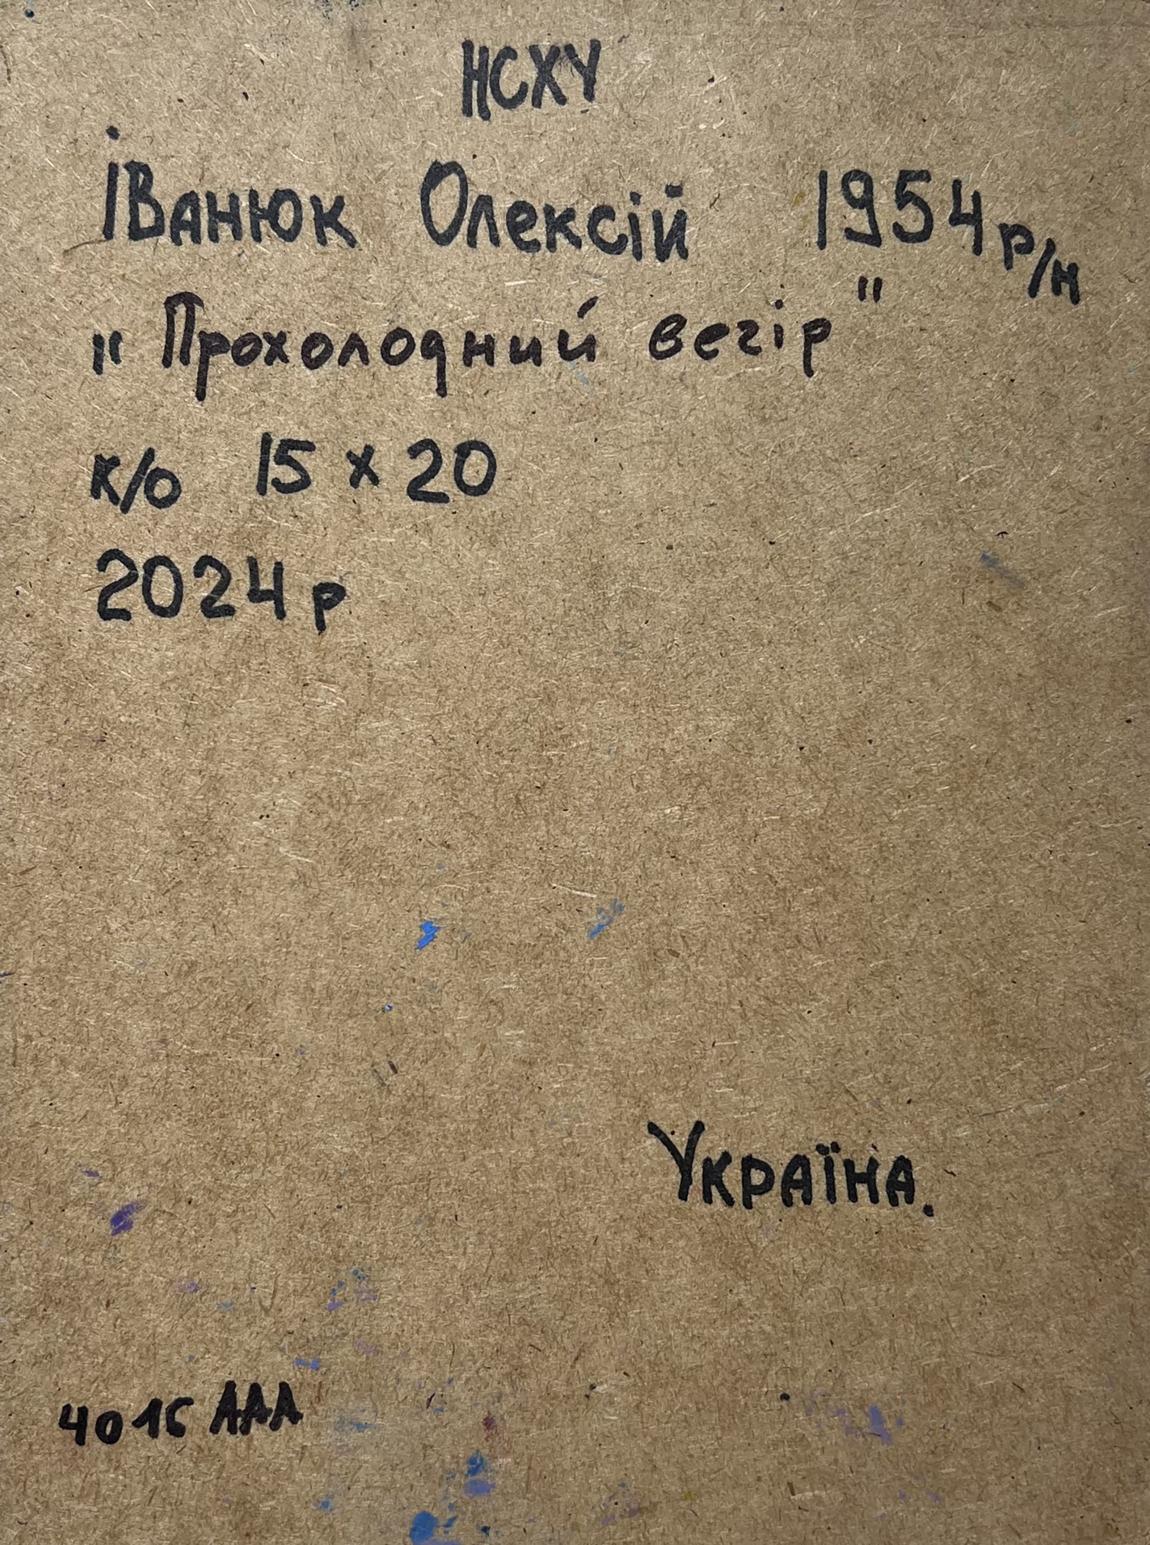 НСХУ
Іванюк Олексій 1954 р/н
„Прохолодний вечір"
к/о 15 х 20
2024 р
Україна.
4016 ААА